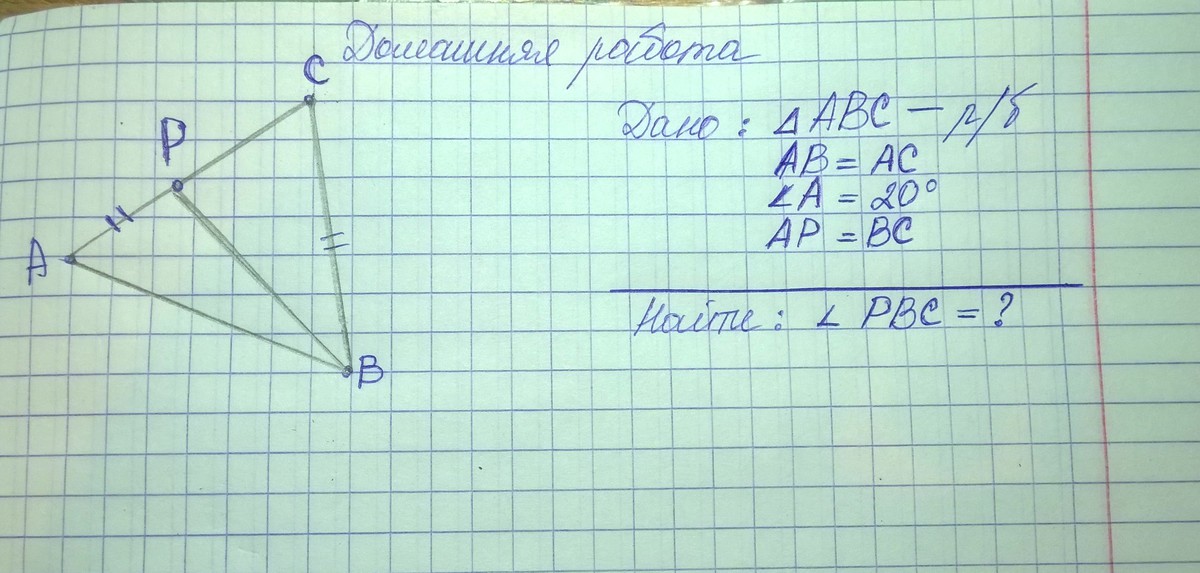 Домашняя работа
C
P
A
B
Дано: △ABC – р/б
AB = AC
∠A = 20°
AP = BC
Найти: ∠PBC = ?